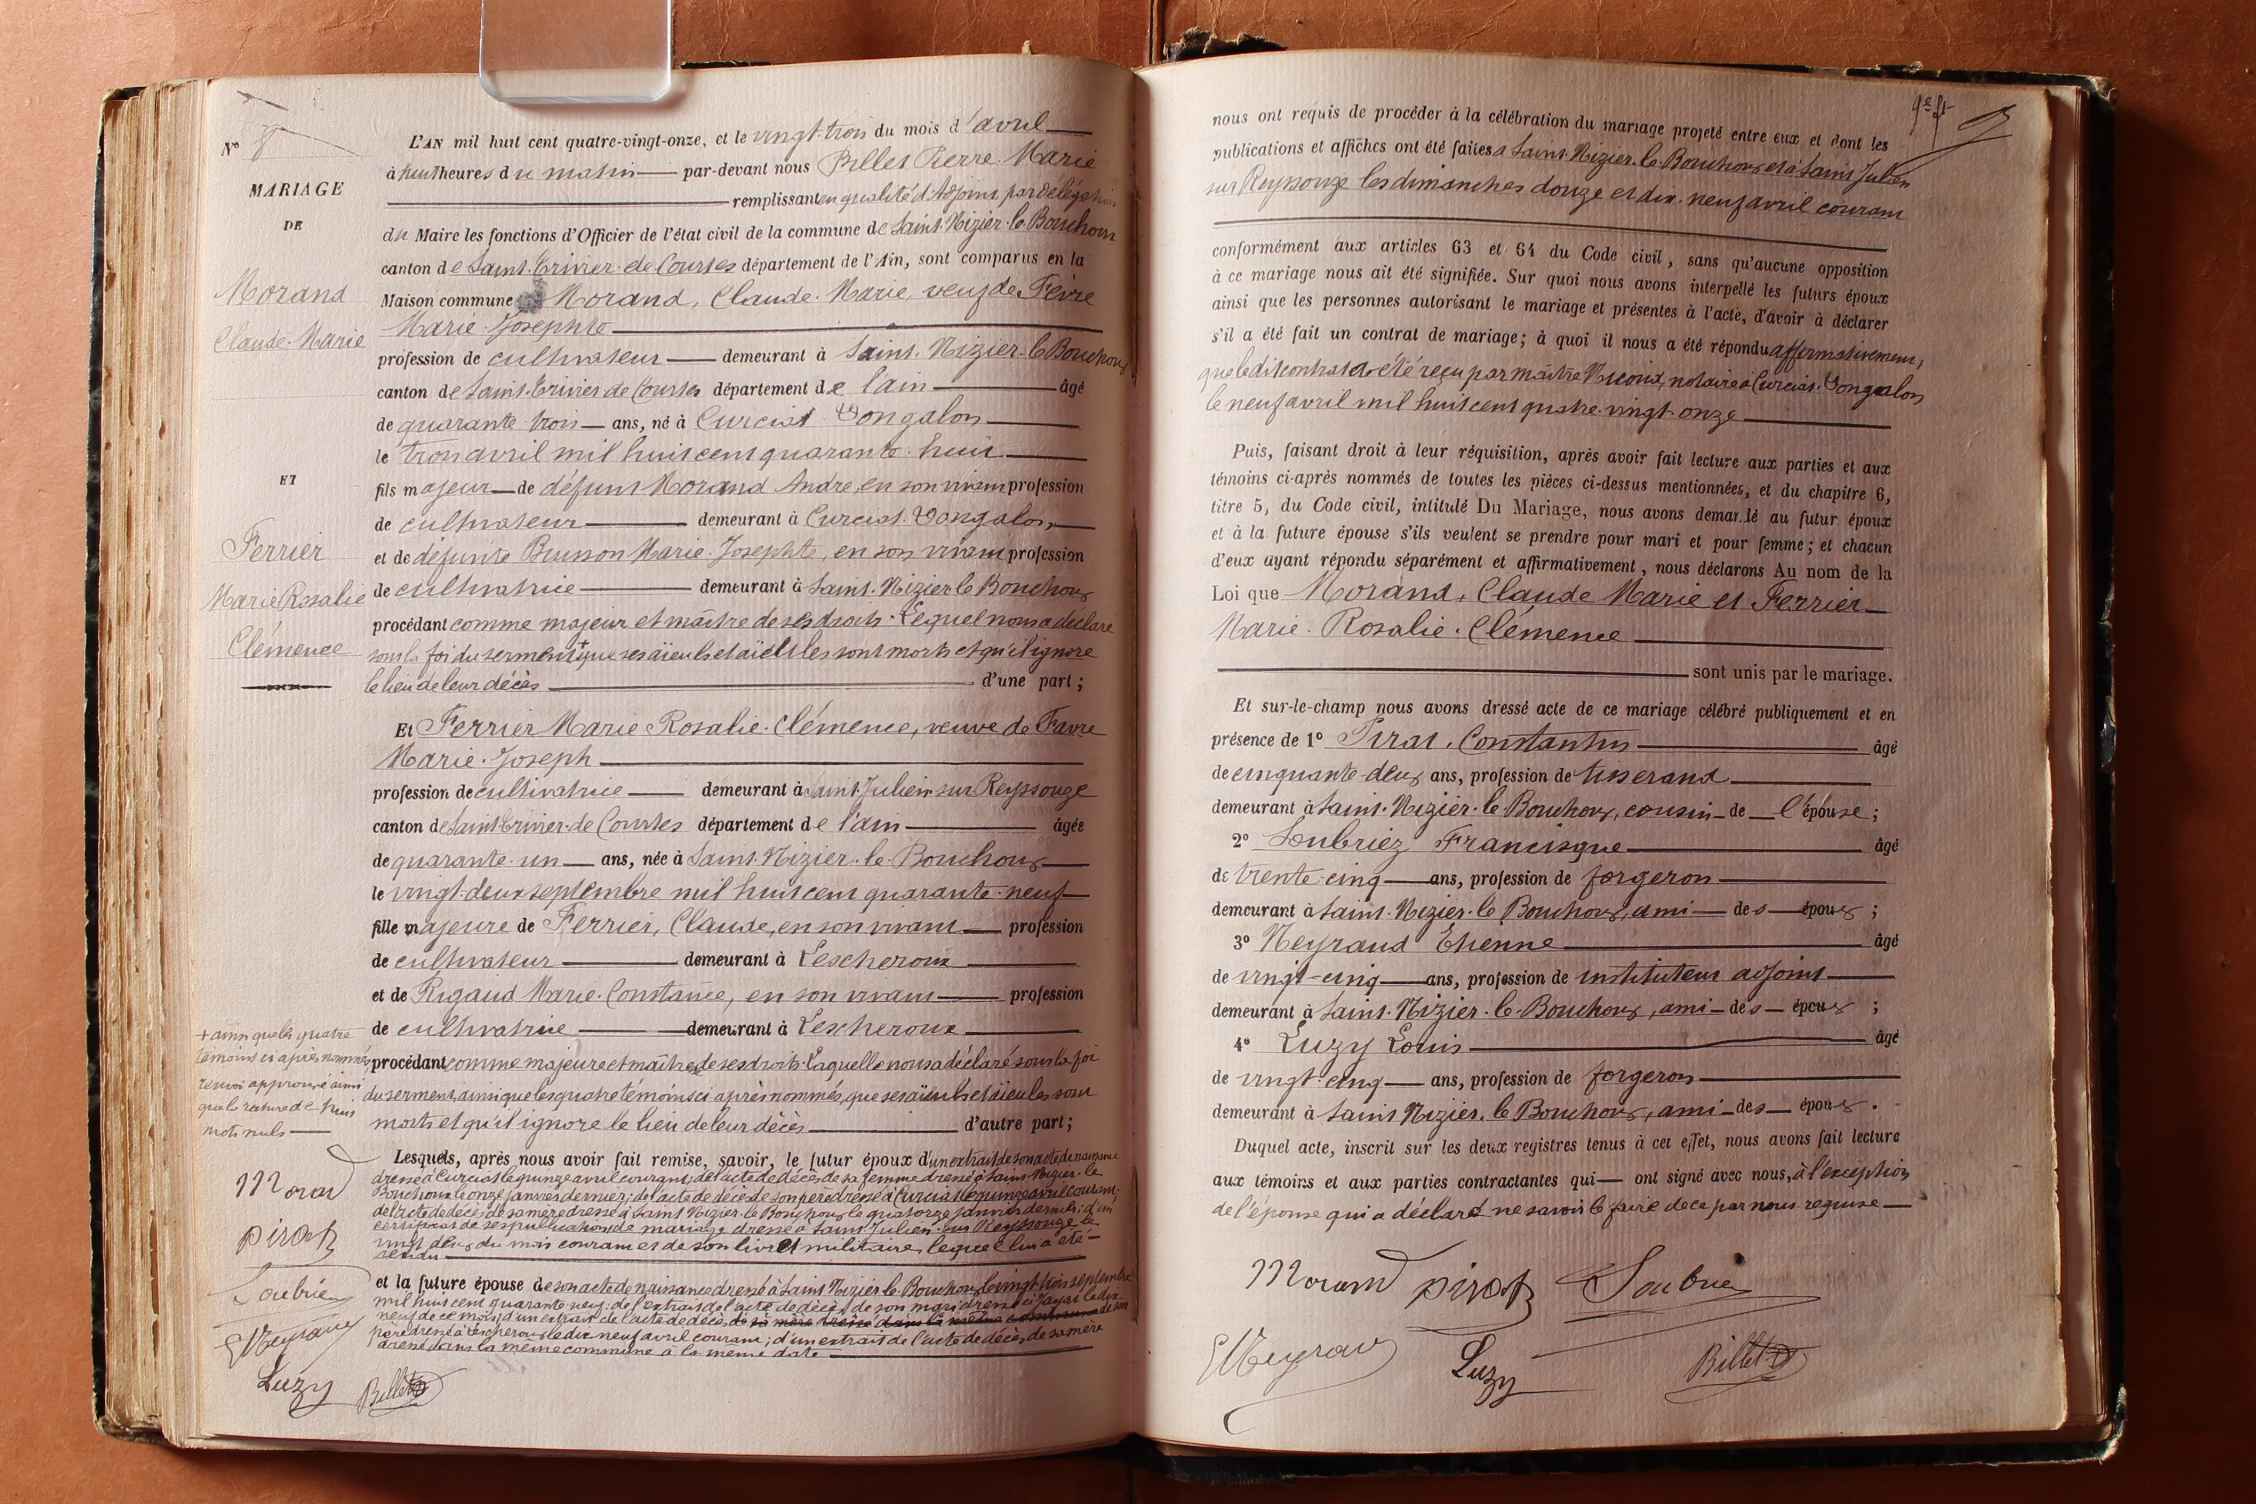 N° 8
MARIAGE
DE
Morand
Claude-Marie
ET
Ferrier
Marie Rosalie
Clémence
L'AN mil huit cent quatre-vingt-onze, et le vingt-trois du mois d'avril
à huit heures du matin par-devant nous Billet Pierre Marie
remplissant en qualité d'Adjoint par délégation
du Maire les fonctions d'Officier de l'état civil de la commune de Saint-Nizier-le-Bouchoux
canton de Saint-Trivier-de-Courtes département de l'Ain, sont comparus en la
Maison commune Morand, Claude-Marie, veuf de Fèvre
Marie-Josephte
profession de cultivateur demeurant à Saint-Nizier-le-Bouchoux
canton de Saint-Trivier de Courtes département de l'ain âgé
de quarante trois ans, né à Curciat-Dongalon
le trois avril mil huit cent quarante-huit
fils majeur de défunt Morand André, en son vivant profession
de cultivateur demeurant à Curciat-Dongalon,
et de défunte Buisson Marie-Josephte, en son vivant profession
de cultivatrice demeurant à Saint-Nizier le Bouchoux
procédant comme majeur et maître de ses droits. Lequel nous a déclaré
sous la foi du serment + que ses aïeuls et aïeules sont morts et qu'il ignore
le lieu de leur décès d'une part;
Et Ferrier Marie Rosalie-Clémence, veuve de Favre
Marie-Joseph
profession de cultivatrice demeurant à Saint-Julien sur Reyssouze
canton de Saint Trivier-de Courtes département de l'ain âgée
de quarante-un ans, née à Saint-Nizier-le-Bouchoux
le vingt-deux septembre mil huit cent quarante-neuf
fille majeure de Ferrier, Claude, en son vivant profession
de cultivateur demeurant à Lescheroux
et de Rigaud Marie-Constance, en son vivant profession
de cultivatrice demeurant à Lescheroux
procédant comme majeure et maître de ses droits. Laquelle nous a déclaré sous la foi
du serment, ainsi que les quatre témoins ci après nommés, que ses aïeuls et aïeules sont
morts et qu'il ignore le lieu de leur décès d'autre part;
+ ainsi que les quatre
témoins ci après nommés
renvoi approuvé ainsi
que la rature de huit
mots nuls
Lesquels, après nous avoir fait remise, savoir, le futur époux d'un extrait de son acte de naissance
dressé à Curciat le quinze avril courant; de l'acte de décès de sa femme dressé à Saint-Nizier-le
Bouchoux le onze janvier dernier; de l'acte de décès de son père dressé à Curciat le quinze avril courant;
de l'acte de décès de sa mère dressé à Saint Nizier-le Bouchoux le quatorze janvier dernier; d'un
certificat de ses publications de mariage dressé à Saint Julien-sur Reyssouze le
vingt deux du mois courant et de son livret militaire, lequel lui a été
rendu
et la future épouse de son acte de naissance dressé à Saint Nizier-le Bouchoux le vingt trois septembre
mil huit cent quarante neuf; de l'extrait de l'acte de décès de son mari dressé à Jayat le dix
neuf de ce mois; d'un extrait de l'acte de décès de sa mère dressé dans la même commune de son
père dressé à Lescheroux le dix neuf avril courant; d'un extrait de l'acte de décès de sa mère
dressé dans la même commune à la même date
Morand
Pirat
Soubrié
E Neyraud
Luzy
Billet
nous ont requis de procéder à la célébration du mariage projeté entre eux et dont les
publications et affiches ont été faites à Saint-Nizier-le Bouchoux et à Saint Julien
sur Reyssouze les dimanches douze et dix-neuf avril courant
conformément aux articles 63 et 64 du Code civil, sans qu'aucune opposition
à ce mariage nous ait été signifiée. Sur quoi nous avons interpellé les futurs époux
ainsi que les personnes autorisant le mariage et présentes à l'acte, d'avoir à déclarer
s'il a été fait un contrat de mariage; à quoi il nous a été répondu affirmativement,
que le dit contrat a été reçu par maître notaire à Curciat-Dongalon
le neuf avril mil huit cent quatre-vingt-onze
Puis, faisant droit à leur réquisition, après avoir fait lecture aux parties et aux
témoins ci-après nommés de toutes les pièces ci-dessus mentionnées, et du chapitre 6,
titre 5, du Code civil, intitulé Du Mariage, nous avons demandé au futur époux
et à la future épouse s'ils veulent se prendre pour mari et pour femme; et chacun
d'eux ayant répondu séparément et affirmativement, nous déclarons Au nom de la
Loi que Morand, Claude Marie et Ferrier
Marie-Rosalie-Clémence
sont unis par le mariage.
Et sur-le-champ nous avons dressé acte de ce mariage célébré publiquement et en
présence de 1° Pirat, Constantin âgé
de cinquante-deux ans, profession de tisserand
demeurant à Saint-Nizier-le Bouchoux, cousin de l'épouse;
2° Soubriez Francisque âgé
de trente-cinq ans, profession de forgeron
demeurant à Saint-Nizier-le Bouchoux, ami des époux;
3° Neyraud Etienne âgé
de vingt-cinq ans, profession de instituteur adjoint
demeurant à Saint-Nizier-le-Bouchoux, ami des époux;
4° Luzy Louis âgé
de vingt-cinq ans, profession de forgeron
demeurant à Saint Nizier-le Bouchoux, ami des époux.
Duquel acte, inscrit sur les deux registres tenus à cet effet, nous avons fait lecture
aux témoins et aux parties contractantes qui ont signé avec nous, à l'exception
de l'épouse qui a déclaré ne savoir le faire de ce par nous requise
Morand Pirat Soubrié
E Neyraud Luzy Billet